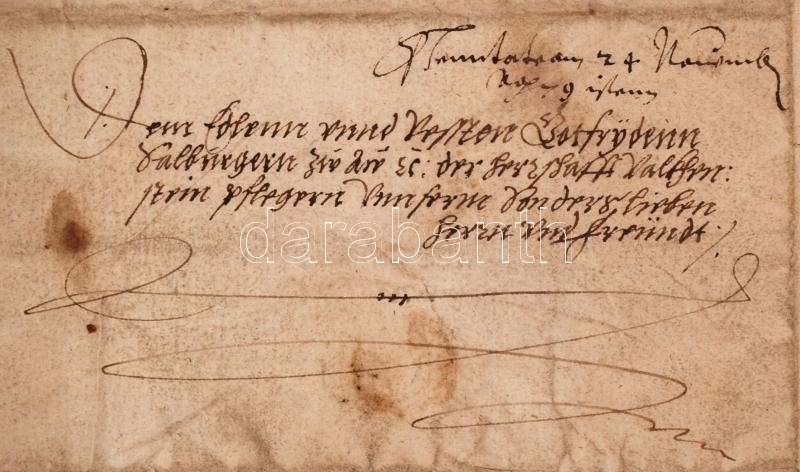 Praesentatum 24 Novemb
79 isten
Dem Edlenn vnnd Vessten Gotfrydenn
Salburgern zw Aw ꝛc: der Herrschafft Valkhen:
stein Pflegern Vnnserm Sonders lieben
Herrn vnd Freündt ·/.
darabanth